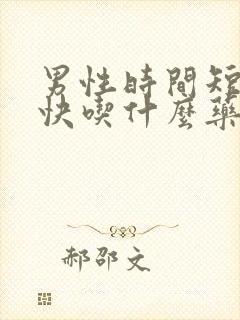 男性時間短
快喫什麼藥
郝邵文